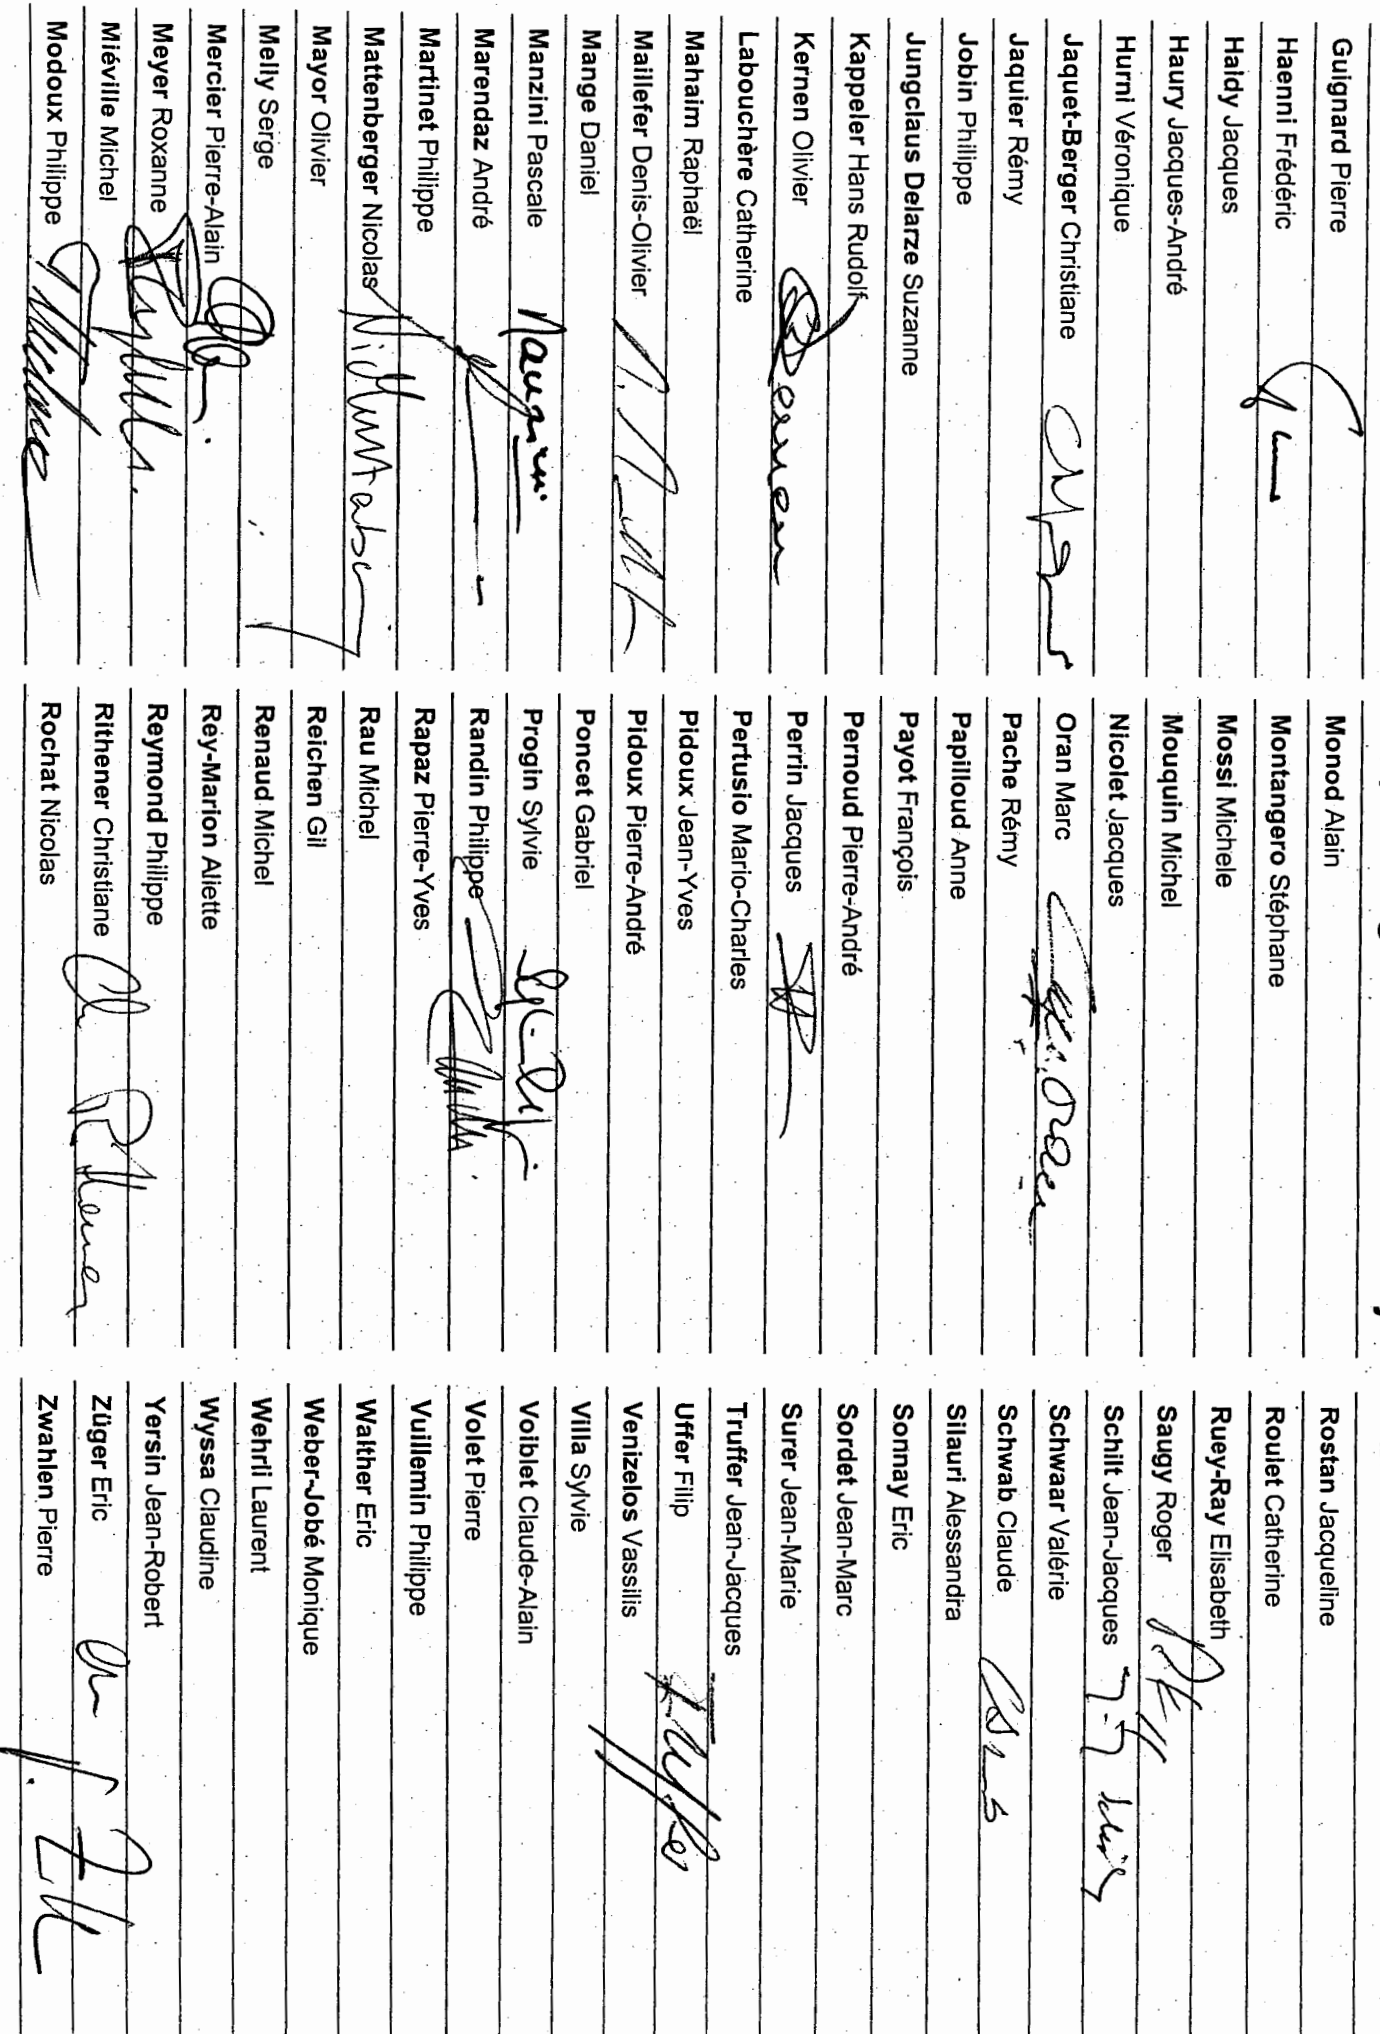 Guignard Pierre
Haenni Frédéric
Haldy Jacques
Haury Jacques-André
Hurni Véronique
Jaquet-Berger Christiane
Jaquier Rémy
Jobin Philippe
Jungclaus Delarze Suzanne
Kappeler Hans Rudolf
Kernen Olivier
Labouchère Catherine
Mahaim Raphaël
Maillefer Denis-Olivier
Mange Daniel
Manzini Pascale
Marendaz André
Martinet Philippe
Mattenberger Nicolas
Mayor Olivier
Melly Serge
Mercier Pierre-Alain
Meyer Roxanne
Miéville Michel
Modoux Philippe
Monod Alain
Montangero Stéphane
Mossi Michele
Mouquin Michel
Nicolet Jacques
Oran Marc
Pache Rémy
Papilloud Anne
Payot François
Pernoud Pierre-André
Perrin Jacques
Pertusio Mario-Charles
Pidoux Jean-Yves
Pidoux Pierre-André
Poncet Gabriel
Progin Sylvie
Randin Philippe
Rapaz Pierre-Yves
Rau Michel
Reichen Gil
Renaud Michel
Rey-Marion Aliette
Reymond Philippe
Rithener Christiane
Rochat Nicolas
Rostan Jacqueline
Roulet Catherine
Ruey-Ray Elisabeth
Saugy Roger
Schilt Jean-Jacques
Schwaar Valérie
Schwab Claude
Silauri Alessandra
Sonnay Eric
Sordet Jean-Marc
Surer Jean-Marie
Truffer Jean-Jacques
Uffer Filip
Venizelos Vassilis
Villa Sylvie
Voiblet Claude-Alain
Volet Pierre
Vuillemin Philippe
Walther Eric
Weber-Jobé Monique
Wehrli Laurent
Wyssa Claudine
Yersin Jean-Robert
Züger Eric
Zwahlen Pierre